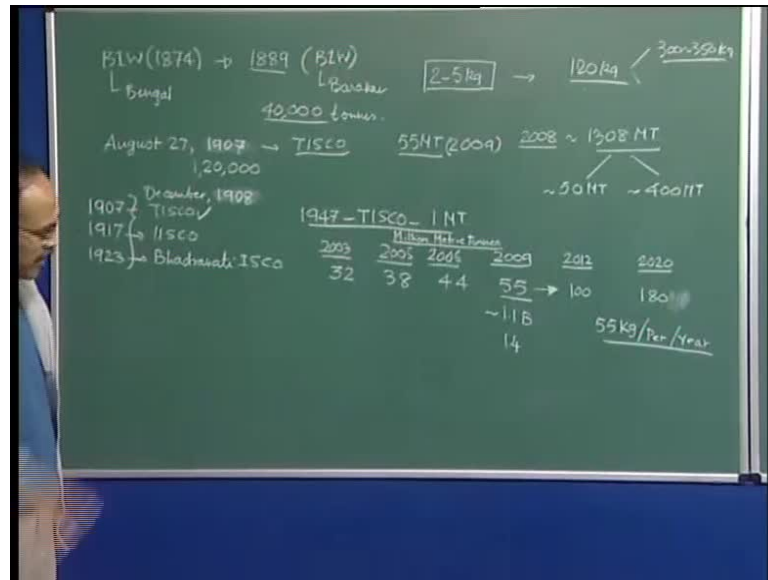 BIW (1874) → 1889 (BIW)
Bengal
Barakar
40,000 tonnes.
2-5kg → 120kg
300-350kg
August 27, 1907 → TISCO
1,20,000
55MT (2009)
2008 ~ 1308 MT
~50MT ~400MT
December, 1908
1907 → TISCO ✓
1917 → IISCO
1923 → Bhadravati ISCO
1947 - TISCO - 1 MT
Million Metric Tonnes
2003 2005 2006 2009 2012 2020
32 38 44 55 → 100 180
~1.1B
14
55kg/Per/Year